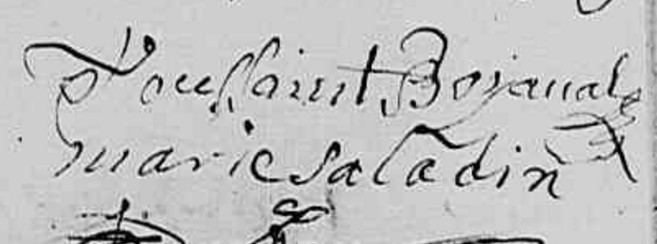 Toussaint Bojanal
marie saladin